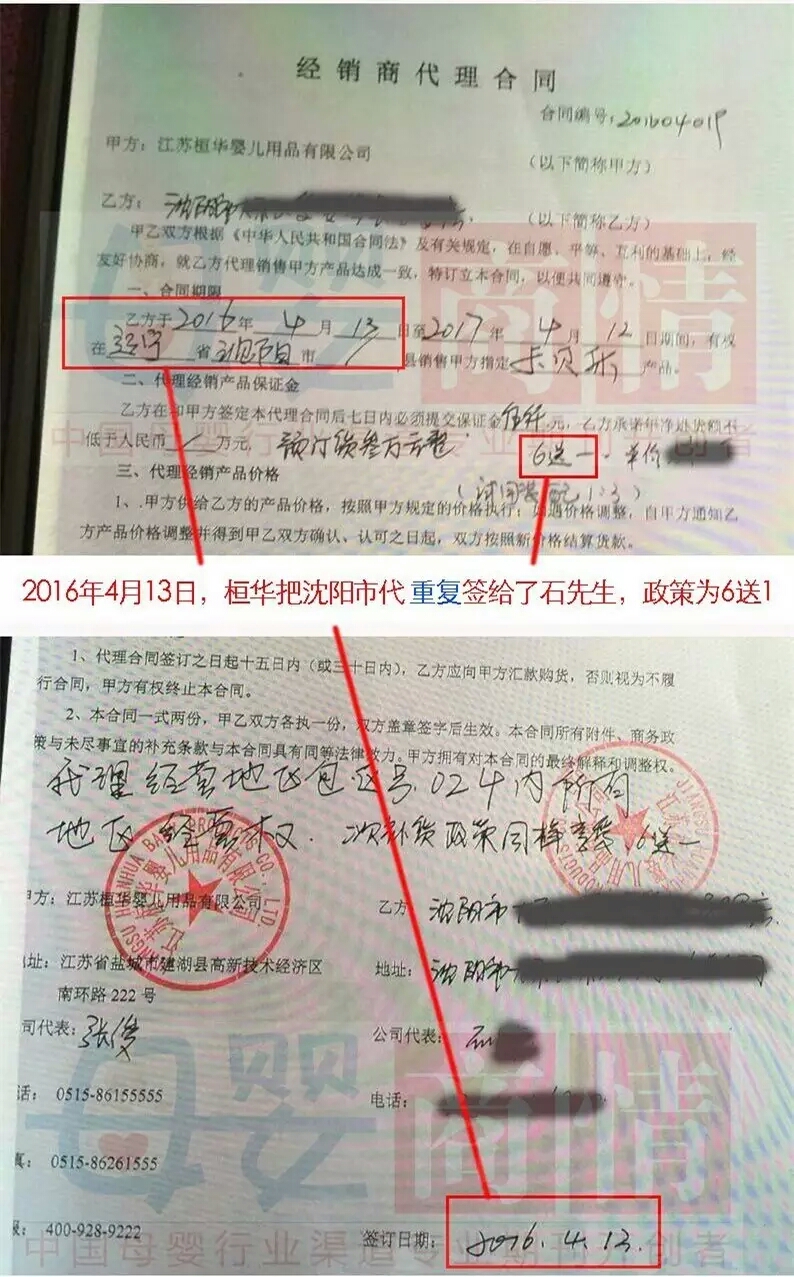 经销商代理合同
合同编号:20160401P
甲方:江苏桓华婴儿用品有限公司
(以下简称甲方)
乙方:沈阳市
(以下简称乙方)
甲乙双方根据《中华人民共和国合同法》及有关规定,在自愿、平等、互利的基础上,经
友好协商,就乙方代理销售甲方产品达成一致,特订立本合同,以便共同遵守。
一、合同期限
乙方于2016年4月13日至2017年4月12日期间,有权
在辽宁省沈阳市/县销售甲方指定卡贝乐产品。
二、代理经销产品保证金
乙方在和甲方签定本代理合同后七日内必须提交保证金伍仟元,乙方承诺年净进货额不
低于人民币/万元,预订货叁万元整 6送一 单价
三、代理经销产品价格
1、甲方供给乙方的产品价格,按照甲方规定的价格执行;如遇价格调整,自甲方通知乙
方产品价格调整并得到甲乙双方确认、认可之日起,双方按照新价格结算货款。
2016年4月13日,桓华把沈阳市代 重复签给了石先生,政策为6送1
1、代理合同签订之日起十五日内(或三十日内),乙方应向甲方汇款购货,否则视为不履
行合同,甲方有权终止本合同。
2、本合同一式两份,甲乙双方各执一份,双方盖章签字后生效。本合同所有附件、商务政
策与未尽事宜的补充条款与本合同具有同等法律效力。甲方拥有对本合同的最终解释和调整权。
代理经营地区包区号024内所有
地区经营权.二次补货政策同样享受6送一
甲方:江苏桓华婴儿用品有限公司
乙方 沈阳市
地址:江苏省盐城市建湖县高新技术经济区
南环路222号
地址:沈阳市
公司代表:张俊
公司代表:石
话:0515-86155555
电话:
真:0515-86261555
400-928-9222
签订日期:2016.4.13.
母婴商情
中国母婴行业渠道专业期刊开创者